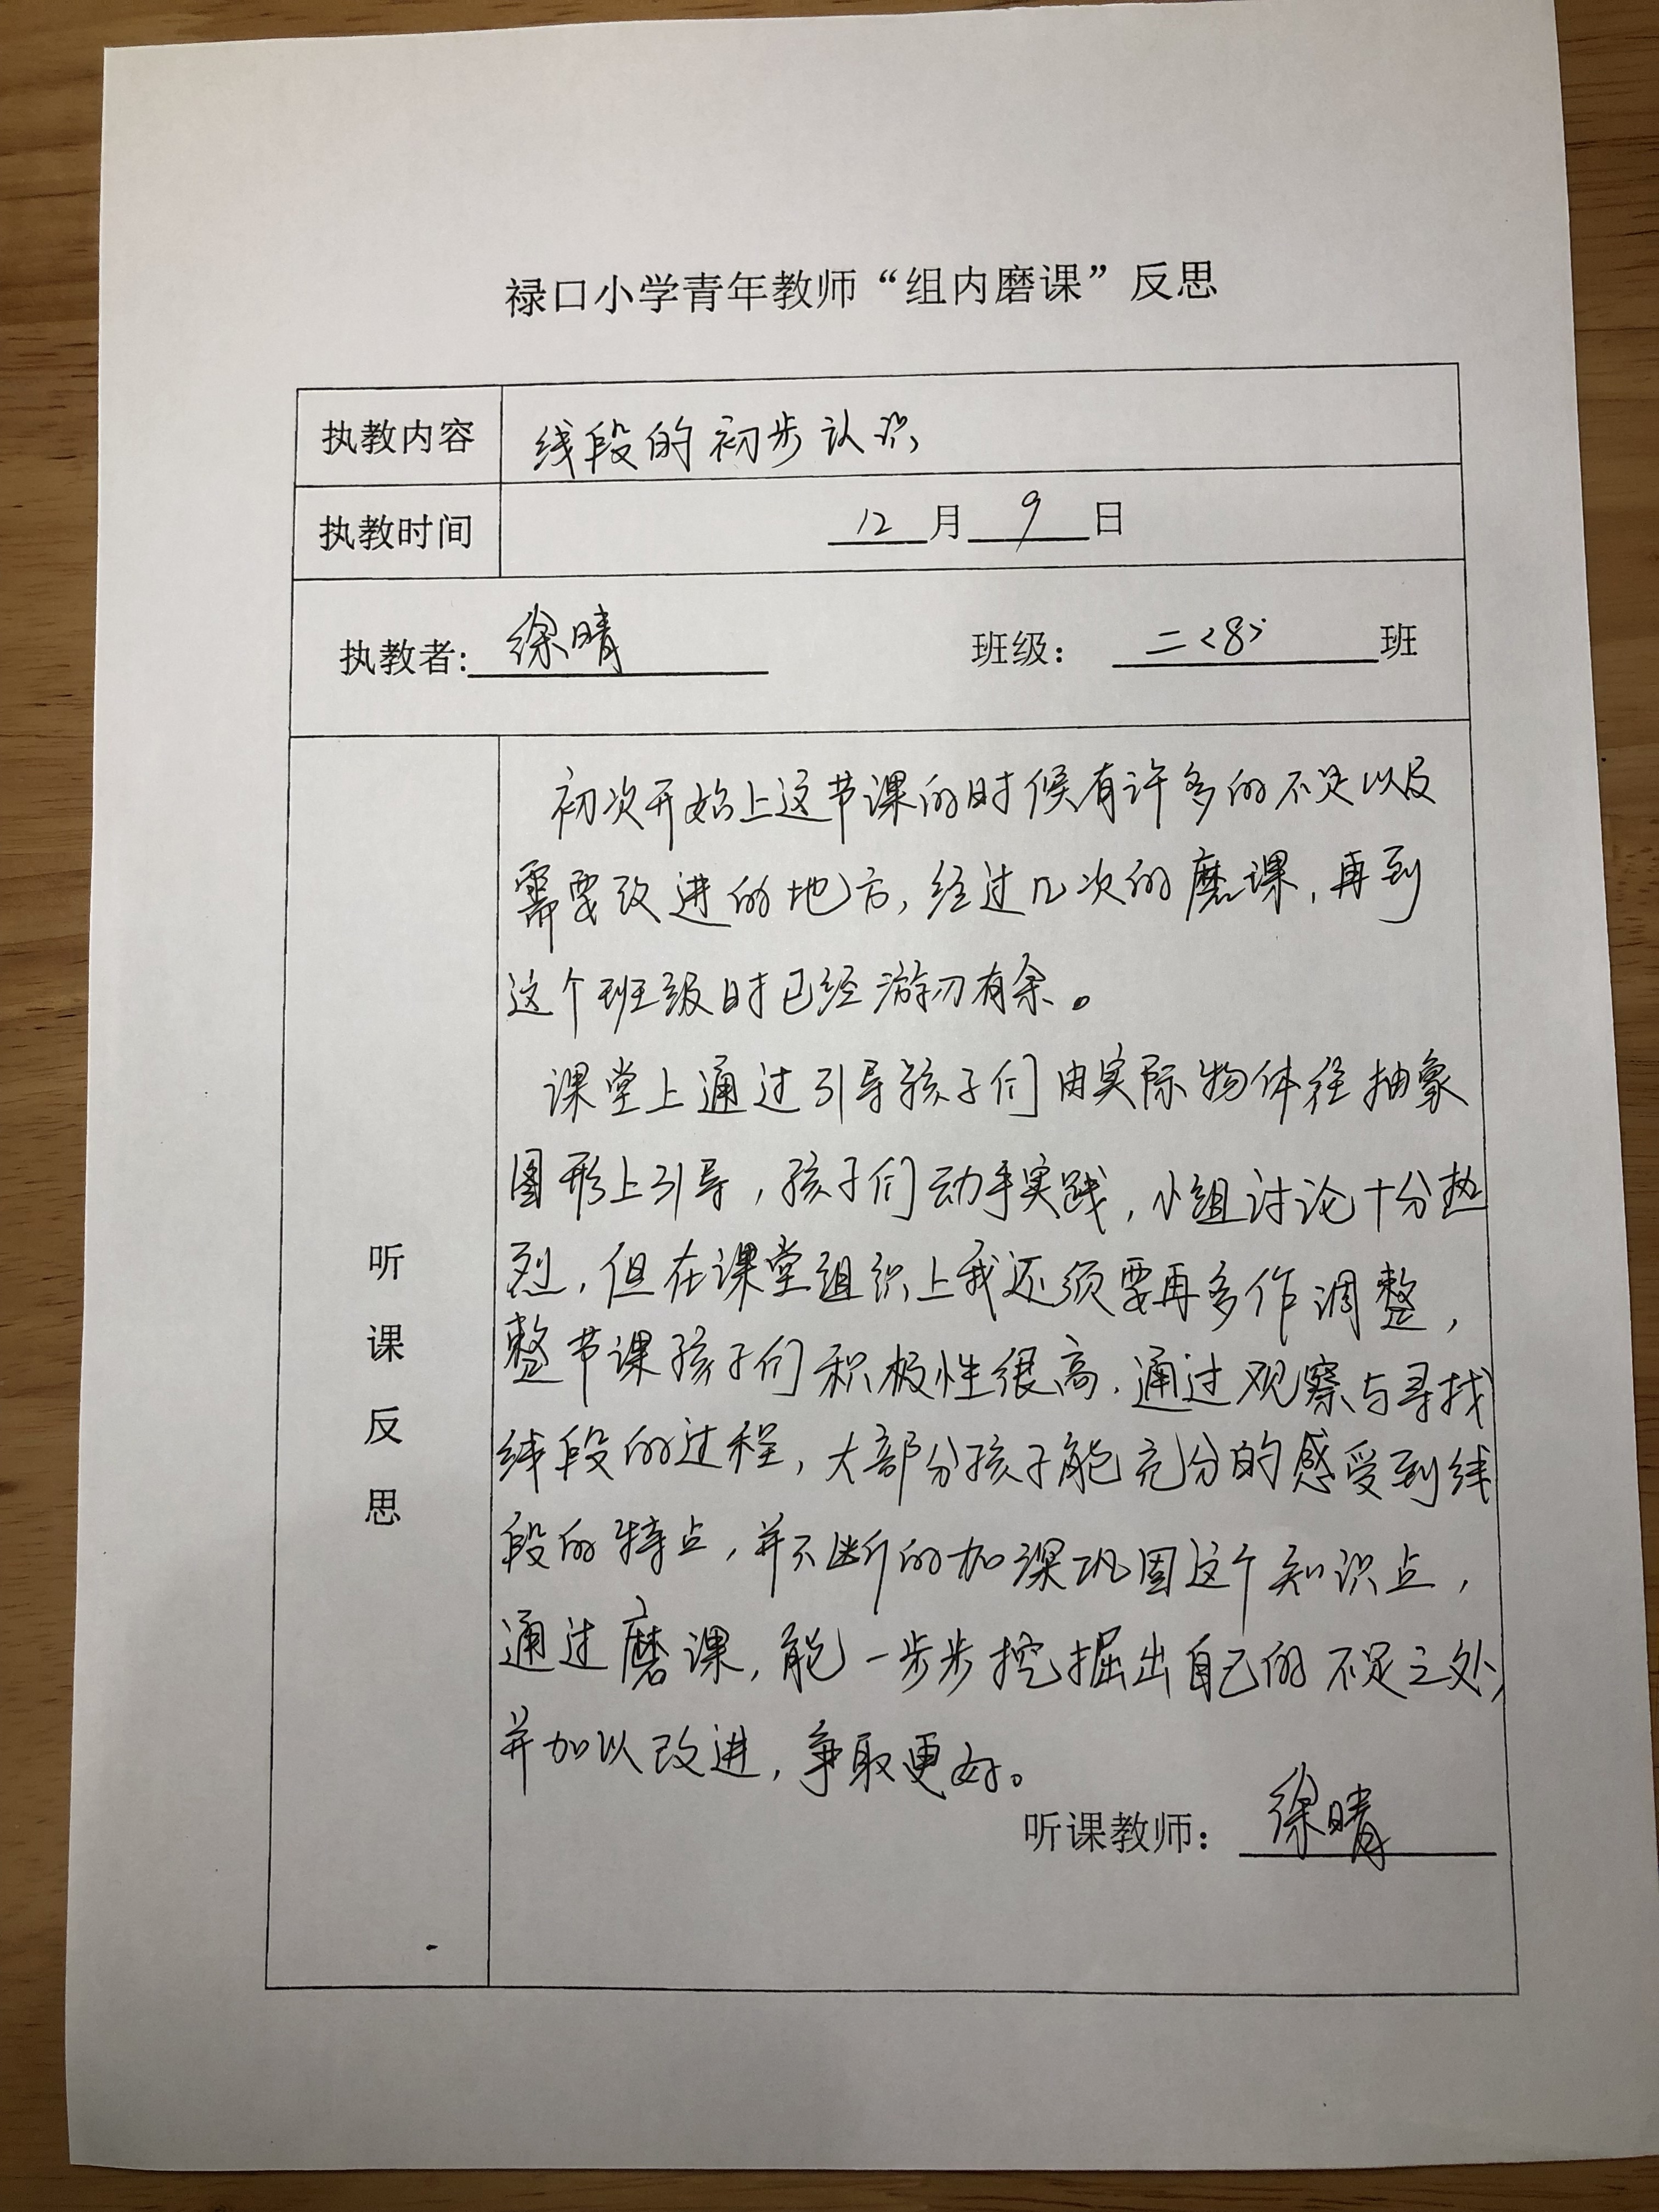 禄口小学青年教师“组内磨课”反思
执教内容 线段的初步认识
执教时间 12月9日
执教者:徐晴 班级：二<8>班
听课反思
初次开始上这节课的时候有许多的不足以及
需要改进的地方,经过几次的磨课,再到
这个班级时已经游刃有余。
课堂上通过引导孩子们由实际物体往抽象
图形上引导,孩子们动手实践,小组讨论十分热
烈,但在课堂组织上我还须要再多作调整,
整节课孩子们积极性很高,通过观察与寻找
线段的过程,大部分孩子能充分的感受到线
段的特点,并不断的加深巩固这个知识点,
通过磨课,能一步步挖掘出自己的不足之处,
并加以改进,争取更好。
听课教师：徐晴